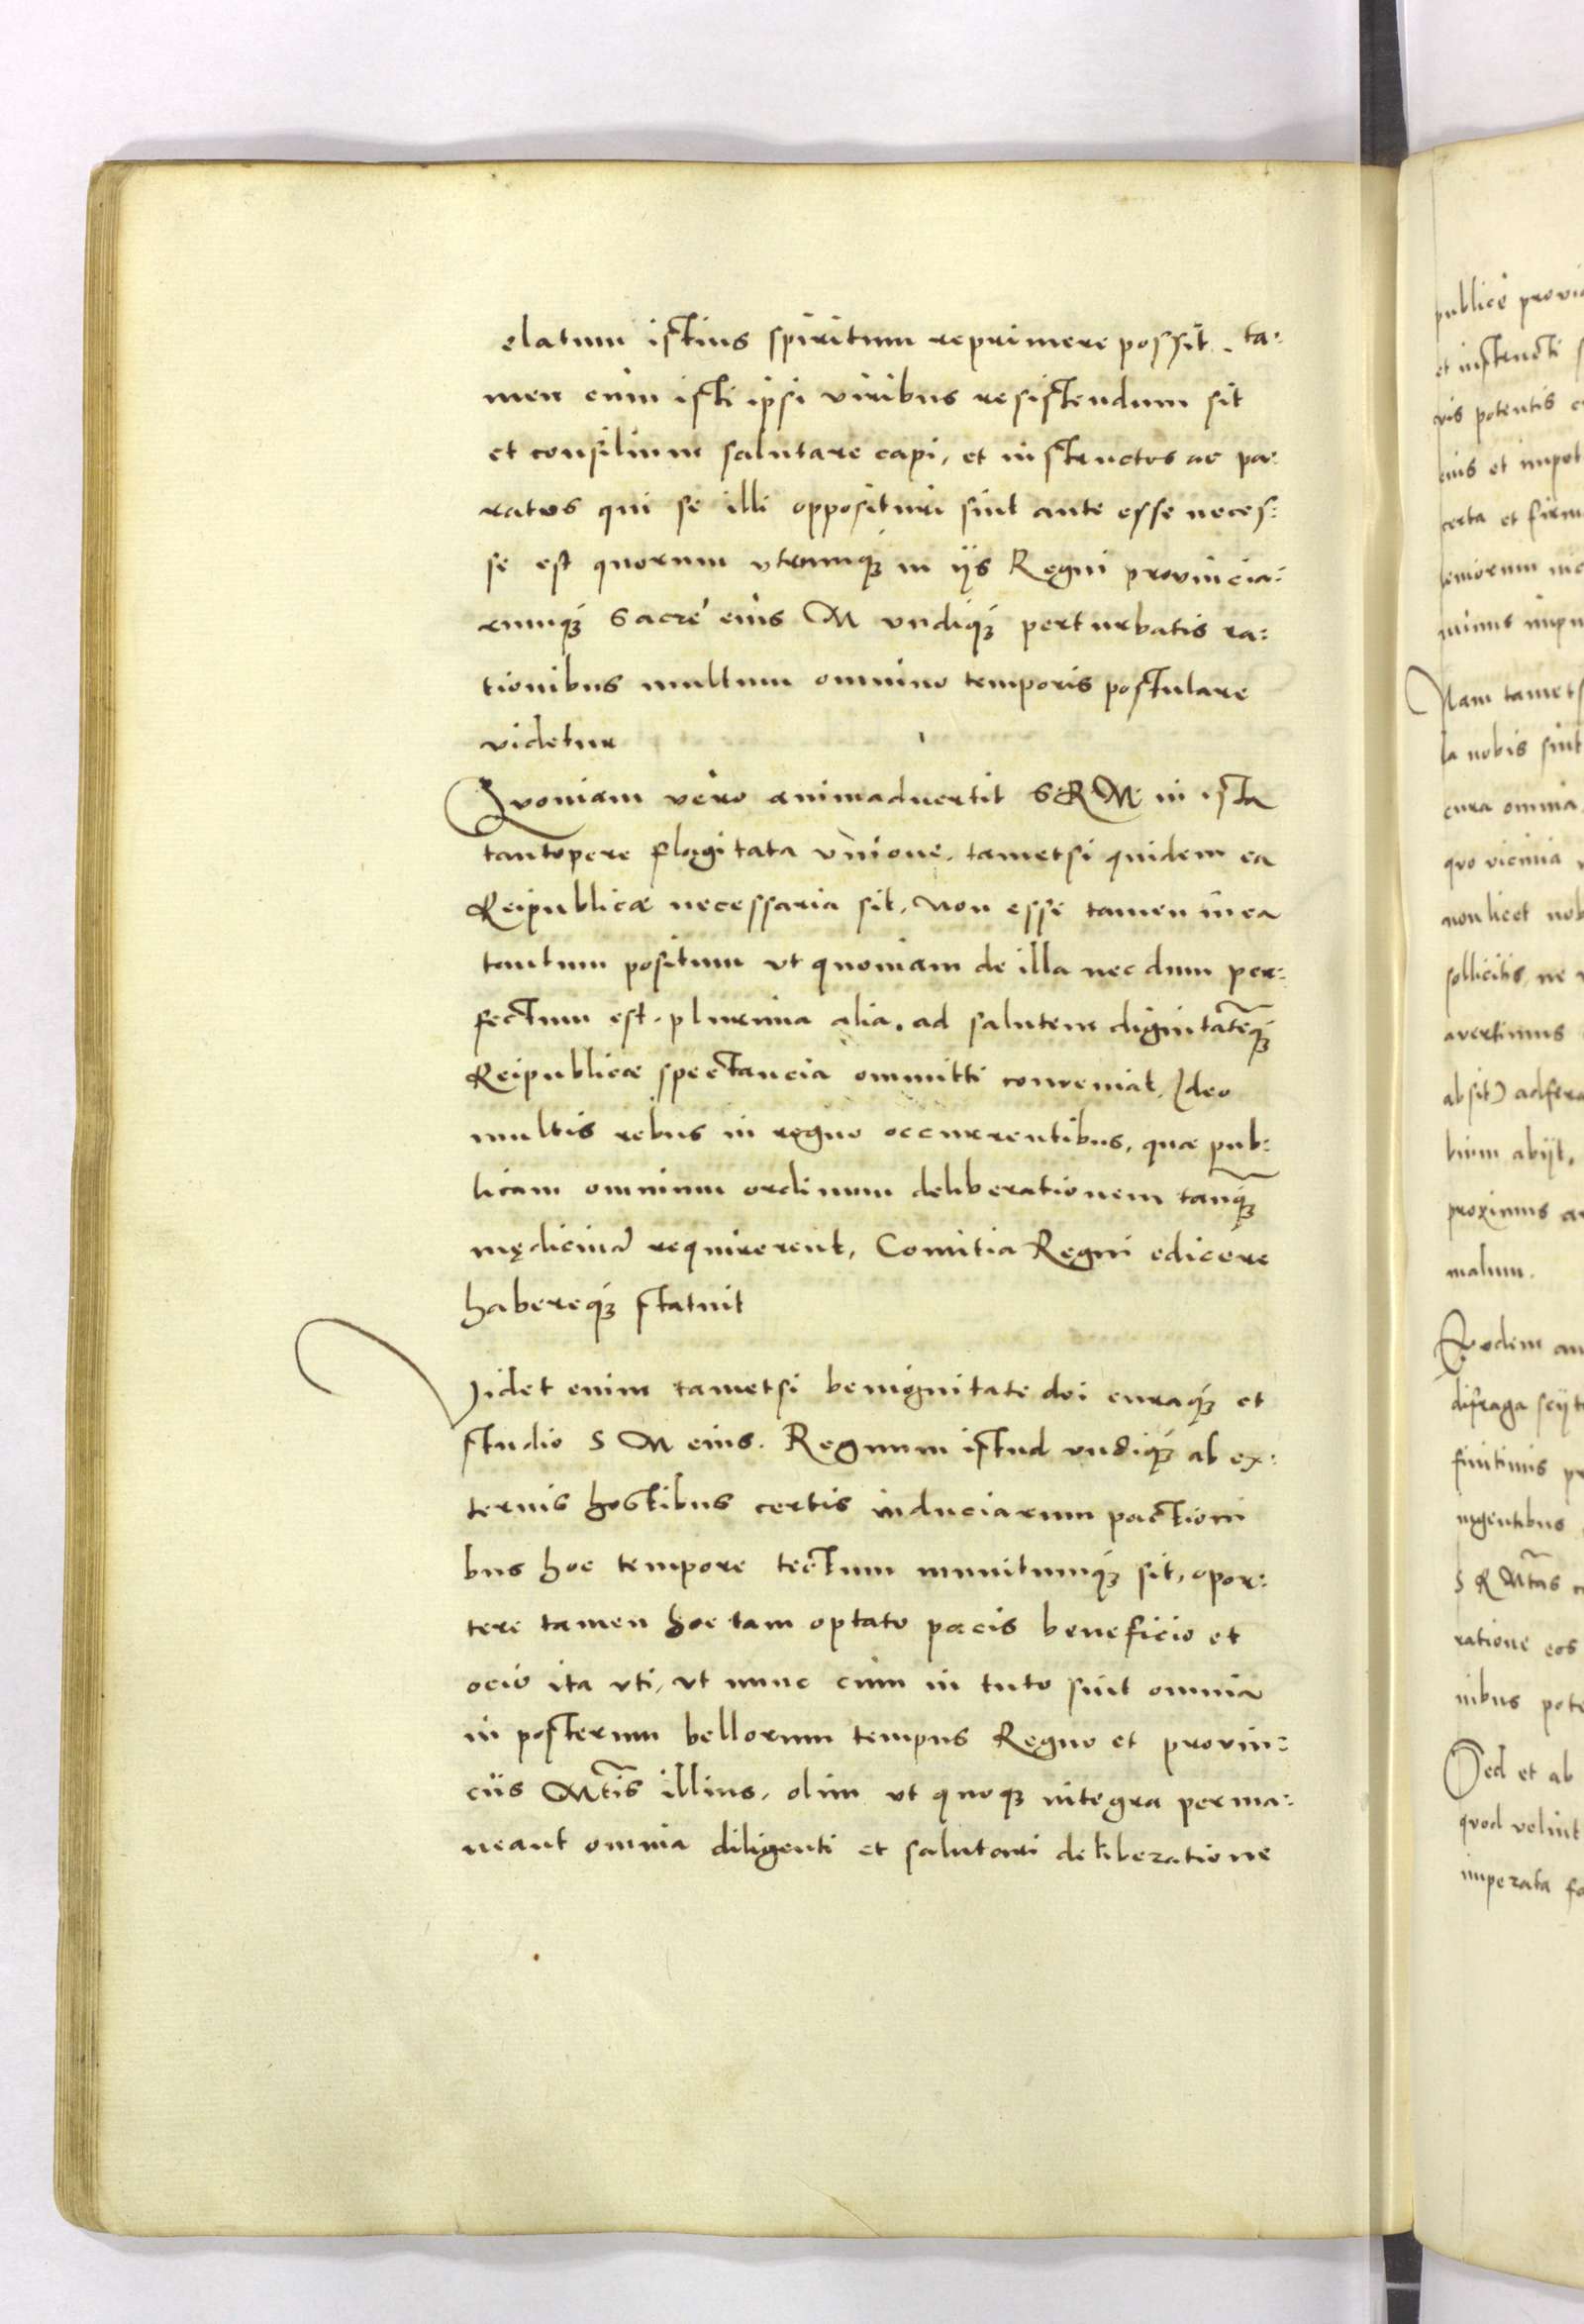 elatum istius spiritum reprimere possit. ta:
men cum isti ipsi viribus resistendum sit
et consilium salutare capi, et instructos ac pa:
ratos qui se illi opposituri sint ante esse neces:
se est quorum vtrumq́ꝫ in ijs Regni provincia:
rumq́ꝫ Sacrę eius M vndiq́ꝫ perturbatis ra:
tionibus multum omnino temporis postulare
videtur
Qvoniam vero animaduertit S R M in ista
tantopere flagitata vnione, tametsi quidem ea
Reipublicæ necessaria sit, Non esse tamen in ea
tantum positum vt quoniam de illa nec dum per:
fectum est, plurima alia, ad salutem dignitatēq́ꝫ
Reipublicæ spectancia ommitti conveniat, Ideo
multis rebus in regno occurrentibus, quæ pub:
licam omnium ordinum deliberationem tanq̄ꝫ
medicinā requirerent, Comitia Regni edicere
habereq́ꝫ statuit
Videt enim tametsi benignitate dei curaq́ꝫ et
studio S M eius. Regnum istud vndiq́ꝫ ab ex:
ternis hostibus certis induciarum pactioni
bus hoc tempore tectum munitumq́ꝫ sit, opor:
tere tamen hoc tam optato pacis beneficio et
ocio ita vti, vt nunc cum in tuto sint omnia
in posterum bellorum tempus Regno et provin:
ciis Mt̄is illius, olim vt quoqꝫ integra perma:
neant omnia diligenti et salutari deliberatione
publicę
et instructi
vis potentis
eius et
certa et
minus
Nam tamets
la nobis sint
cura omnia
quo vicinia
non licet
sollicitis, ne
avertimus
absit)
abijt,
proximus
malum.
finitimis
S R Mt̄as
ratione eos
nibus
Sed et ab
quod velint
imperata